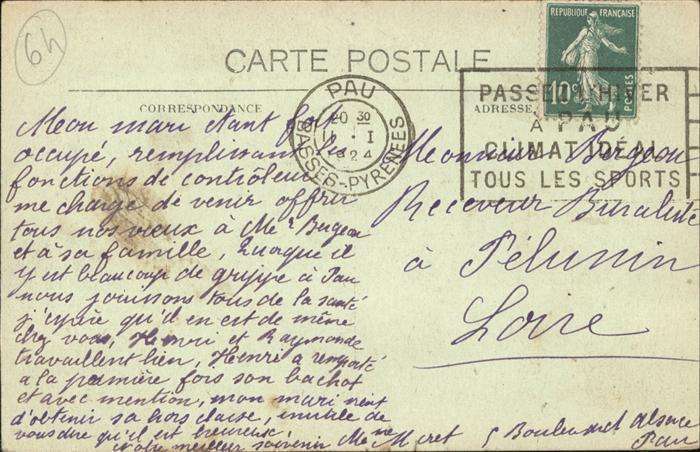 64
CARTE POSTALE
RÉPUBLIQUE FRANÇAISE
10c
POSTES
CORRESPONDANCE
ADRESSE
PAU
20 30
1 · I
24
BASSES-PYRENEES
PASSEZ L'HIVER
À PAU
CLIMAT IDEAL
TOUS LES SPORTS
Mon mari étant fort
occupé, remplissant les
fonctions de contrôleur
me charge de venir offrir
tous nos vœux à Mr Bugeau
et à sa famille, Quoique il
y est beaucoup de grippe à Pau
nous jouissons tous de la santé
j'espère qu'il en est de même
chez vous, Henri et Raymonde
travaillent bien, Henri a remporté
a la première fois son bachot
et avec mention, mon mari vient
d'obtenir sa hors classe, inutile de
vous dire qu'il est heureux.
votre meilleur souvenir Mme Moret 5 Boulevard Alsace
Pau
Monsieur
Receveur Buraliste
à Pélussin
Loire